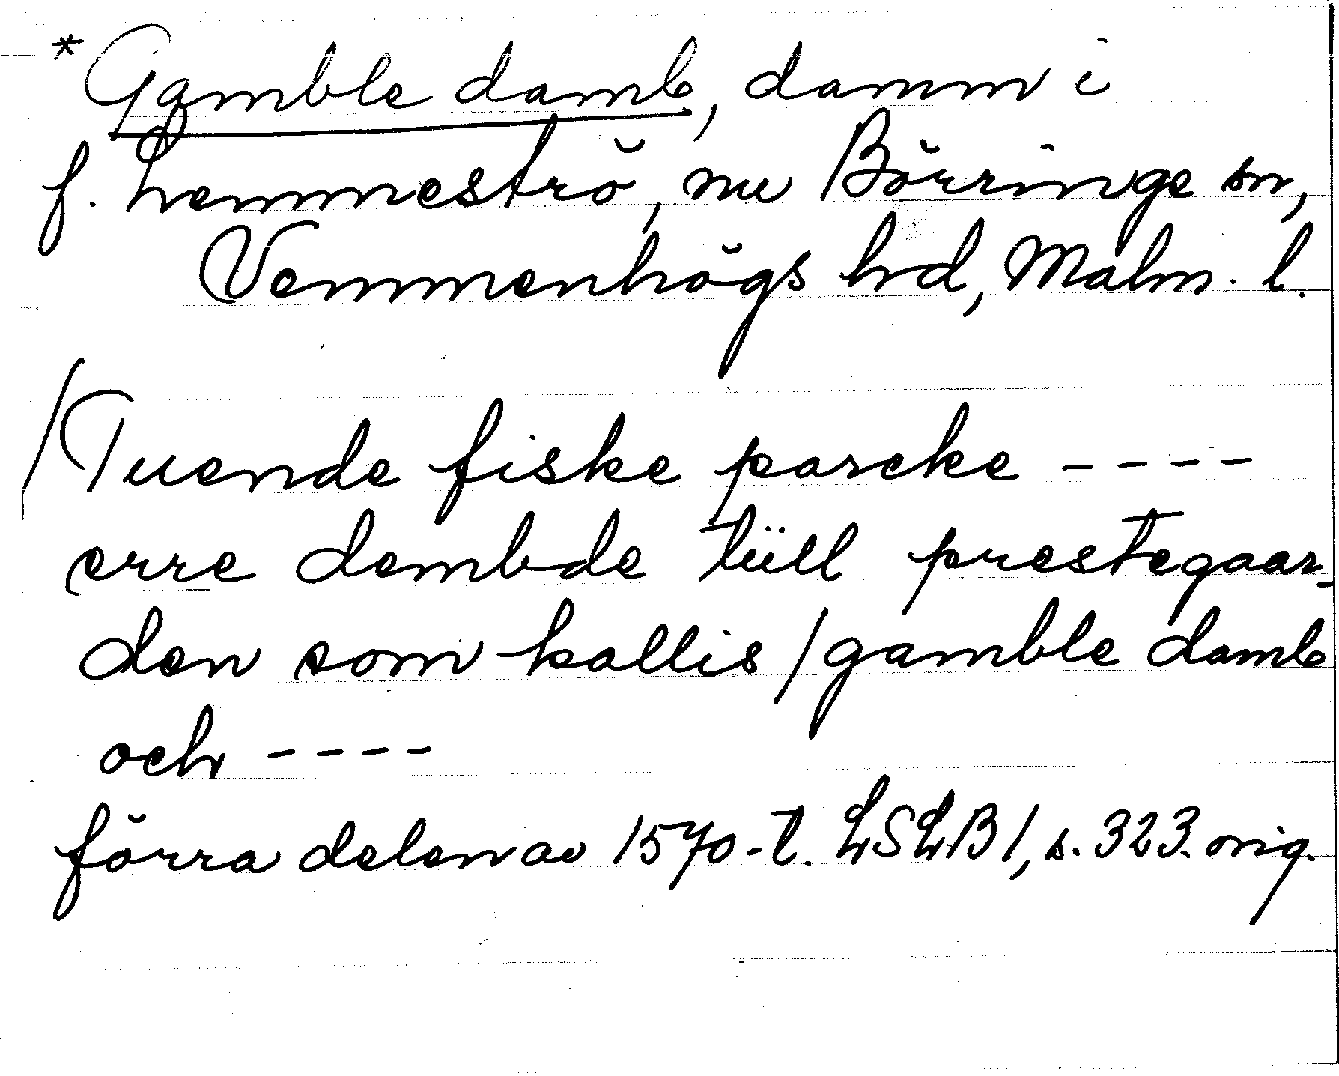 *Gamble damb, damm i
f. Lemmeströ, nu Börringe sn,
Vemmenhögs hd, Malm. l.
/Tuende fiske parcke ----
erre dembde tüll prestegaar-
den som kallis / gamble damb
och ----
förra delen av 1570-t. LSLB 1, s. 323. orig.